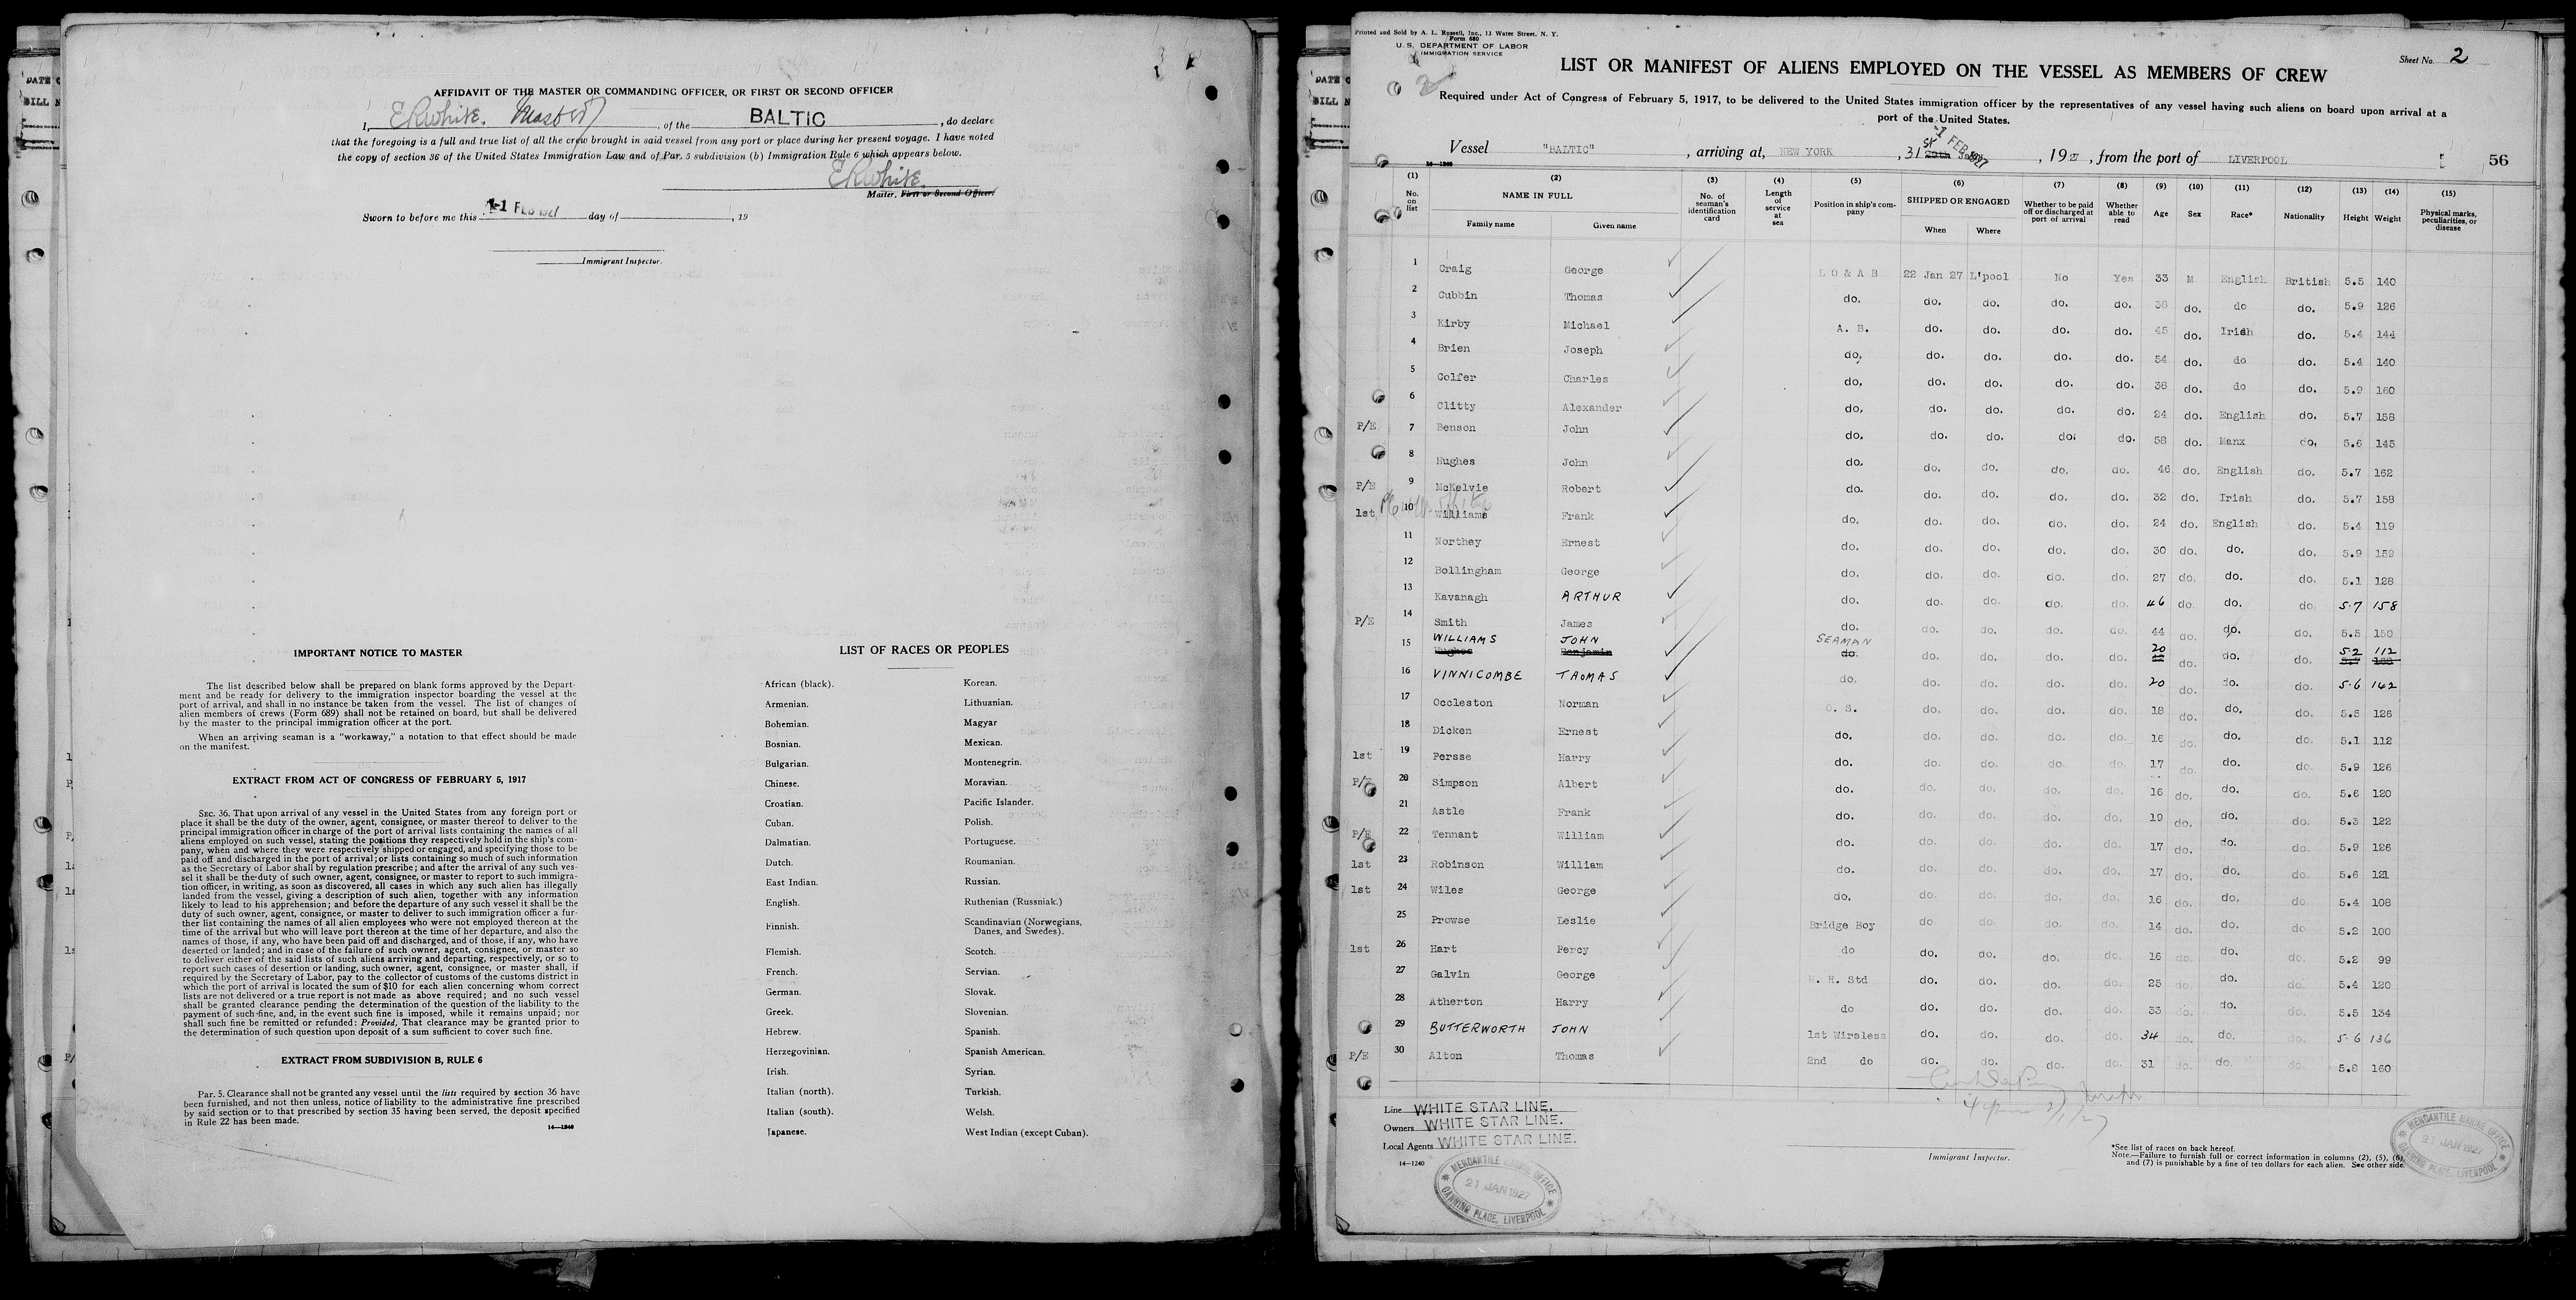 AFFIDAVIT OF THE MASTER OR COMMANDING OFFICER, OR FIRST OR SECOND OFFICER
I, ERWhite. Master, of the BALTIC, do declare
that the foregoing is a full and true list of all the crew brought in said vessel from any port or place during her present voyage. I have noted
the copy of section 36 of the United States Immigration Law and of Par. 5 subdivision (b) Immigration Rule 6 which appears below.
ERWhite.
Master, First or Second Officer.
Sworn to before me this -1 FEB 1927 day of , 19
Immigrant Inspector.
IMPORTANT NOTICE TO MASTER
The list described below shall be prepared on blank forms approved by the Depart-
ment and be ready for delivery to the immigration inspector boarding the vessel at the
port of arrival, and shall in no instance be taken from the vessel. The list of changes of
alien members of crews (Form 689) shall not be retained on board, but shall be delivered
by the master to the principal immigration officer at the port.
When an arriving seaman is a "workaway," a notation to that effect should be made
on the manifest.
EXTRACT FROM ACT OF CONGRESS OF FEBRUARY 5, 1917
SEC. 36. That upon arrival of any vessel in the United States from any foreign port or
place it shall be the duty of the owner, agent, consignee, or master thereof to deliver to the
principal immigration officer in charge of the port of arrival lists containing the names of all
aliens employed on such vessel, stating the positions they respectively hold in the ship's com-
pany, when and where they were respectively shipped or engaged, and specifying those to be
paid off and discharged in the port of arrival; or lists containing so much of such information
as the Secretary of Labor shall by regulation prescribe; and after the arrival of any such ves-
sel it shall be the duty of such owner, agent, consignee, or master to report to such immigra-
tion officer, in writing, as soon as discovered, all cases in which any such alien has illegally
landed from the vessel, giving a description of such alien, together with any information
likely to lead to his apprehension; and before the departure of any such vessel it shall be the
duty of such owner, agent, consignee, or master to deliver to such immigration officer a fur-
ther list containing the names of all alien employees who were not employed thereon at the
time of the arrival but who will leave port thereon at the time of her departure, and also the
names of those, if any, who have been paid off and discharged, and of those, if any, who have
deserted or landed; and in case of the failure of such owner, agent, consignee, or master so
to deliver either of the said lists of such aliens arriving and departing, respectively, or so to
report such cases of desertion or landing, such owner, agent, consignee, or master shall, if
required by the Secretary of Labor, pay to the collector of customs of the customs district in
which the port of arrival is located the sum of $10 for each alien concerning whom correct
lists are not delivered or a true report is not made as above required; and no such vessel
shall be granted clearance pending the determination of the question of the liability to the
payment of such fine, and, in the event such fine is imposed, while it remains unpaid; nor
shall such fine be remitted or refunded: Provided, That clearance may be granted prior to
the determination of such question upon deposit of a sum sufficient to cover such fine.
EXTRACT FROM SUBDIVISION B, RULE 6
Par. 5. Clearance shall not be granted any vessel until the lists required by section 36 have
been furnished, and not then unless, notice of liability to the administrative fine prescribed
by said section or to that prescribed by section 35 having been served, the deposit specified
in Rule 22 has been made.
14—1240
LIST OF RACES OR PEOPLES
African (black). Korean.
Armenian. Lithuanian.
Bohemian. Magyar
Bosnian. Mexican.
Bulgarian. Montenegrin.
Chinese. Moravian.
Croatian. Pacific Islander.
Cuban. Polish.
Dalmatian. Portuguese.
Dutch. Roumanian.
East Indian. Russian.
English. Ruthenian (Russniak.)
Finnish. Scandinavian (Norwegians,
Danes, and Swedes).
Flemish. Scotch.
French. Servian.
German. Slovak.
Greek. Slovenian.
Hebrew. Spanish.
Herzegovinian. Spanish American.
Irish. Syrian.
Italian (north). Turkish.
Italian (south). Welsh.
Japanese. West Indian (except Cuban).
Printed and Sold by A. L. Russell, Inc., 13 Water Street, N. Y.
Form 680
U. S. DEPARTMENT OF LABOR
IMMIGRATION SERVICE
Sheet No. 2
LIST OR MANIFEST OF ALIENS EMPLOYED ON THE VESSEL AS MEMBERS OF CREW
Required under Act of Congress of February 5, 1917, to be delivered to the United States immigration officer by the representatives of any vessel having such aliens on board upon arrival at a
port of the United States.
Vessel "BALTIC", arriving at, NEW YORK, 31st -1 FEB 1927, 192, from the port of LIVERPOOL 56
(1) (2) (3) (4) (5) (6) (7) (8) (9) (10) (11) (12) (13) (14) (15)
No. on list NAME IN FULL Family name Given name No. of seaman's identification card Length of service at sea Position in ship's company SHIPPED OR ENGAGED When Where Whether to be paid off or discharged at port of arrival Whether able to read Age Sex Race* Nationality Height Weight Physical marks, peculiarities, or disease
1 Craig George L O & A B 22 Jan 27 L'pool No Yes 33 M English British 5.5 140
2 Cubbin Thomas do. do. do. do. do. 38 do. do do. 5.9 126
3 Kirby Michael A. B. do. do. do. do. 45 do. Irish do. 5.4 144
4 Brien Joseph do. do. do. do. do. 54 do. do do. 5.4 140
5 Colfer Charles do. do. do. do. do. 38 do. do do. 5.9 160
6 Clitty Alexander do. do. do. do. do. 24 do. English do. 5.7 158
P/E 7 Benson John do. do. do. do. do. 58 do. Manx do. 5.6 145
8 Hughes John do. do. do. do. do. 46 do. English do. 5.7 162
P/E 9 McKelvie Robert do. do. do. do. do. 32 do. Irish do. 5.7 158
1st 10 Williams Frank do. do. do. do. do. 24 do. English do. 5.4 119
11 Northey Ernest do. do. do. do. do. 30 do. do. do. 5.9 159
12 Bollingham George do. do. do. do. do. 27 do. do. do. 5.1 128
13 Kavanagh ARTHUR do. do. do. do. do. 46 do. do. do. 5.7 158
P/E 14 Smith James do. do. do. do. do. 44 do. do. do. 5.5 150
15 WILLIAMS JOHN SEAMAN 20 5.2 112
Hughes Benjamin do. do. do. do. do. do. do. do.
16 VINNICOMBE THOMAS do. do. do. do. do. 20 do. do. do. 5.6 142
17 Occleston Norman O. S. do. do. do. do. 18 do. do. do. 5.5 126
18 Dicken Ernest do. do. do. do. do. 16 do. do. do. 5.1 112
1st 19 Persse Harry do. do. do. do. do. 17 do. do. do. 5.9 126
P/E 20 Simpson Albert do. do. do. do. do. 16 do. do. do. 5.6 120
21 Astle Frank do. do. do. do. do. 19 do. do. do. 5.3 122
P/E 22 Tennant William do. do. do. do. do. 17 do. do. do. 5.9 126
1st 23 Robinson William do. do. do. do. do. 17 do. do. do. 5.6 121
1st 24 Wiles George do. do. do. do. do. 16 do. do. do. 5.4 108
25 Prowse Leslie Bridge Boy do. do. do. do. 14 do. do. do 5.2 100
1st 26 Hart Percy do do. do. do. do. 16 do. do. do. 5.2 99
27 Galvin George R. Std do. do. do. do. 25 do. do. do. 5.4 120
28 Atherton Harry do do. do. do. do. 33 do. do. do. 5.5 134
29 BUTTERWORTH JOHN 1st Wireless do. do. do. do. 34 do. do. do. 5.6 136
P/E 30 Alton Thomas 2nd do do. do. do. do. 31 do. do. do. 5.8 160
Line WHITE STAR LINE.
Owners WHITE STAR LINE.
Local Agents WHITE STAR LINE.
14—1240
Immigrant Inspector.
*See list of races on back hereof.
Note.—Failure to furnish full or correct information in columns (2), (5), (6),
and (7) is punishable by a fine of ten dollars for each alien. See other side.
MERCANTILE MARINE OFFICE
21 JAN 1927
CANNING PLACE, LIVERPOOL
MERCANTILE MARINE OFFICE
21 JAN 1927
CANNING PLACE, LIVERPOOL